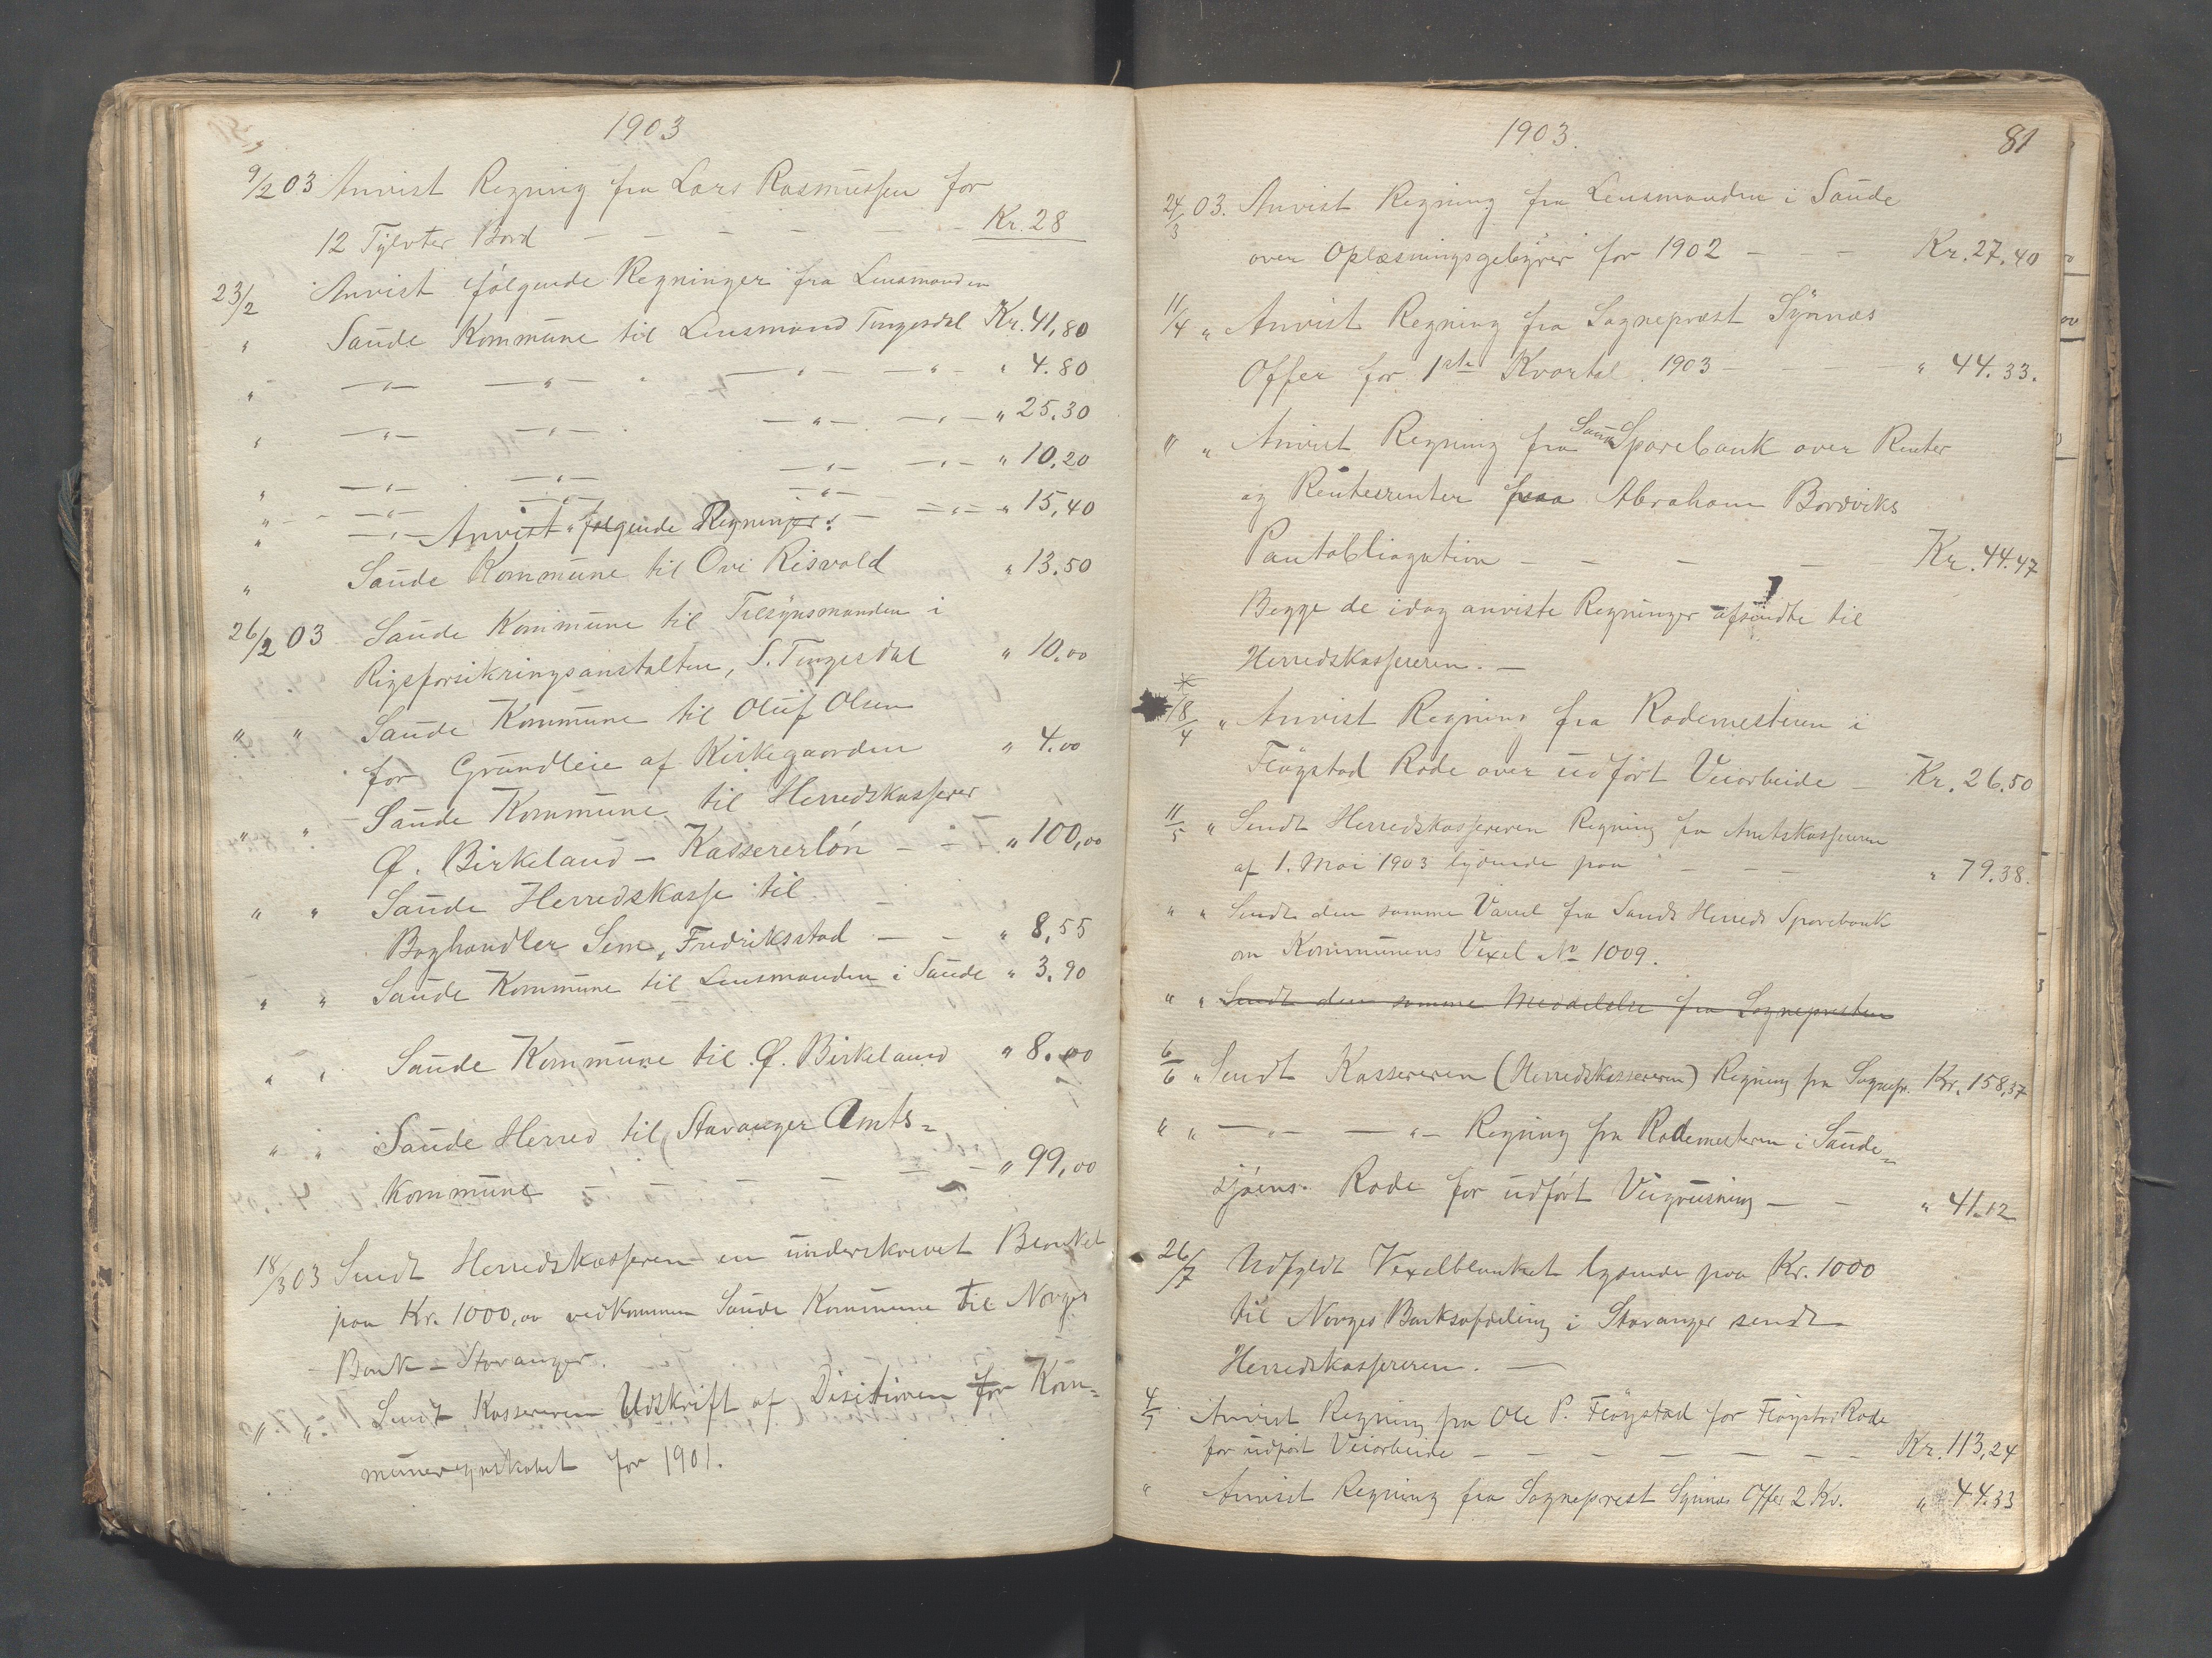 1903
9/2 03 Anvist Regning fra Lars Rasmussen for
12 Tylvter Bord — — — — — — Kr. 28
23/2 Anvist følgende Regninger fra Lensmanden
" Saude Kommune til Lensmand Tengesdal Kr. 41,80
" —"— —"— " —"— —"— " 4.80
" —"— —"— —"— —"— " 25.30
" —"— —"— —"— —"— " 10,20
" —"— —"— —"— —"— " 15,40
" Anvist følgende Regninger:
" Saude Kommune til Ove Risvold " 13.50
26/2 03 Saude Kommune til Tilsynsmanden i
Rigsforsikringsanstalten, S. Tengesdal " 10,00
" " Saude Kommune til Oluf Olsen
for Grundleie af Kirkegaarden " 4.00
" " Saude Kommune til Herredskasserer
Ø. Birkeland — Kassererløn — — " 100,00
" " Saude Herredskasse til
Boghandler Sem, Fredriksstad — — " 8,55
" " Saude Kommune til Lensmanden i Saude " 3.90
" " Saude Kommune til Ø. Birkeland " 8.00
" " Saude Herred til Stavanger Amts=
kommune — — — — — " 99,00
18/3 03 Sendt Herredskasseren en underskrevet Blanket
paa Kr. 1000,00 vedkommen Saude Kommune til Norges
Bank — Stavanger.
" " Sendt Kassereren Udskrift af Disitionen for Kom=
muneregnskabet for 1901.
1903.
81
24/3 03. Anvist Regning fra Lensmanden i Saude
over Oplæsningsgebyrer for 1902 — — — Kr. 27.40
11/4 " Anvist Regning fra Sogneprest Synnæs
Offer for 1ste Kvartal 1903 — — — — " 44.33.
" " Anvist Regning fra Saude Sparebank over Renter
og Rentesrenter paa Abraham Bordviks
Pantobliagation — — — — Kr. 44.47
Begge de idag anviste Regninger afsendte til
Herredskassereren. —
18/4 " Anvist Regning fra Rodemesteren i
Fløgstad Rode over udført Veiarbeide — Kr. 26.50
11/5 " Sendt Herredskassereren Regning fra Amtskassereren
af 1. Mai 1903 lydende paa — — — " 79.38.
" " Sendt den samme Varsel fra Sands Herreds Sparebank
om Kommunens Vexel No 1009.
" " Sendt den samme Meddelelse fra Sognepresten
6/6 " Sendt Kassereren (Herredskassereren) Regning fra Sognepr. Kr. 158,37
" " —"— —"— Regning fra Rodemesteren i Saude=
sjøens Rode for udført Veigrusning — — " 41.12
26/7 Udfyldt Vexelblanket lydende paa Kr. 1000
til Norges Banksafdeling i Stavanger sendt
Herredskassereren. —
4/7 Anvist Regning fra Ole P. Fløgstad for Fløgstad Rode
for udført Veiarbeide — — — — — — — Kr. 113,24
" Anvist Regning fra Sogneprest Synnæs Offer 2 Kv. " 44.33